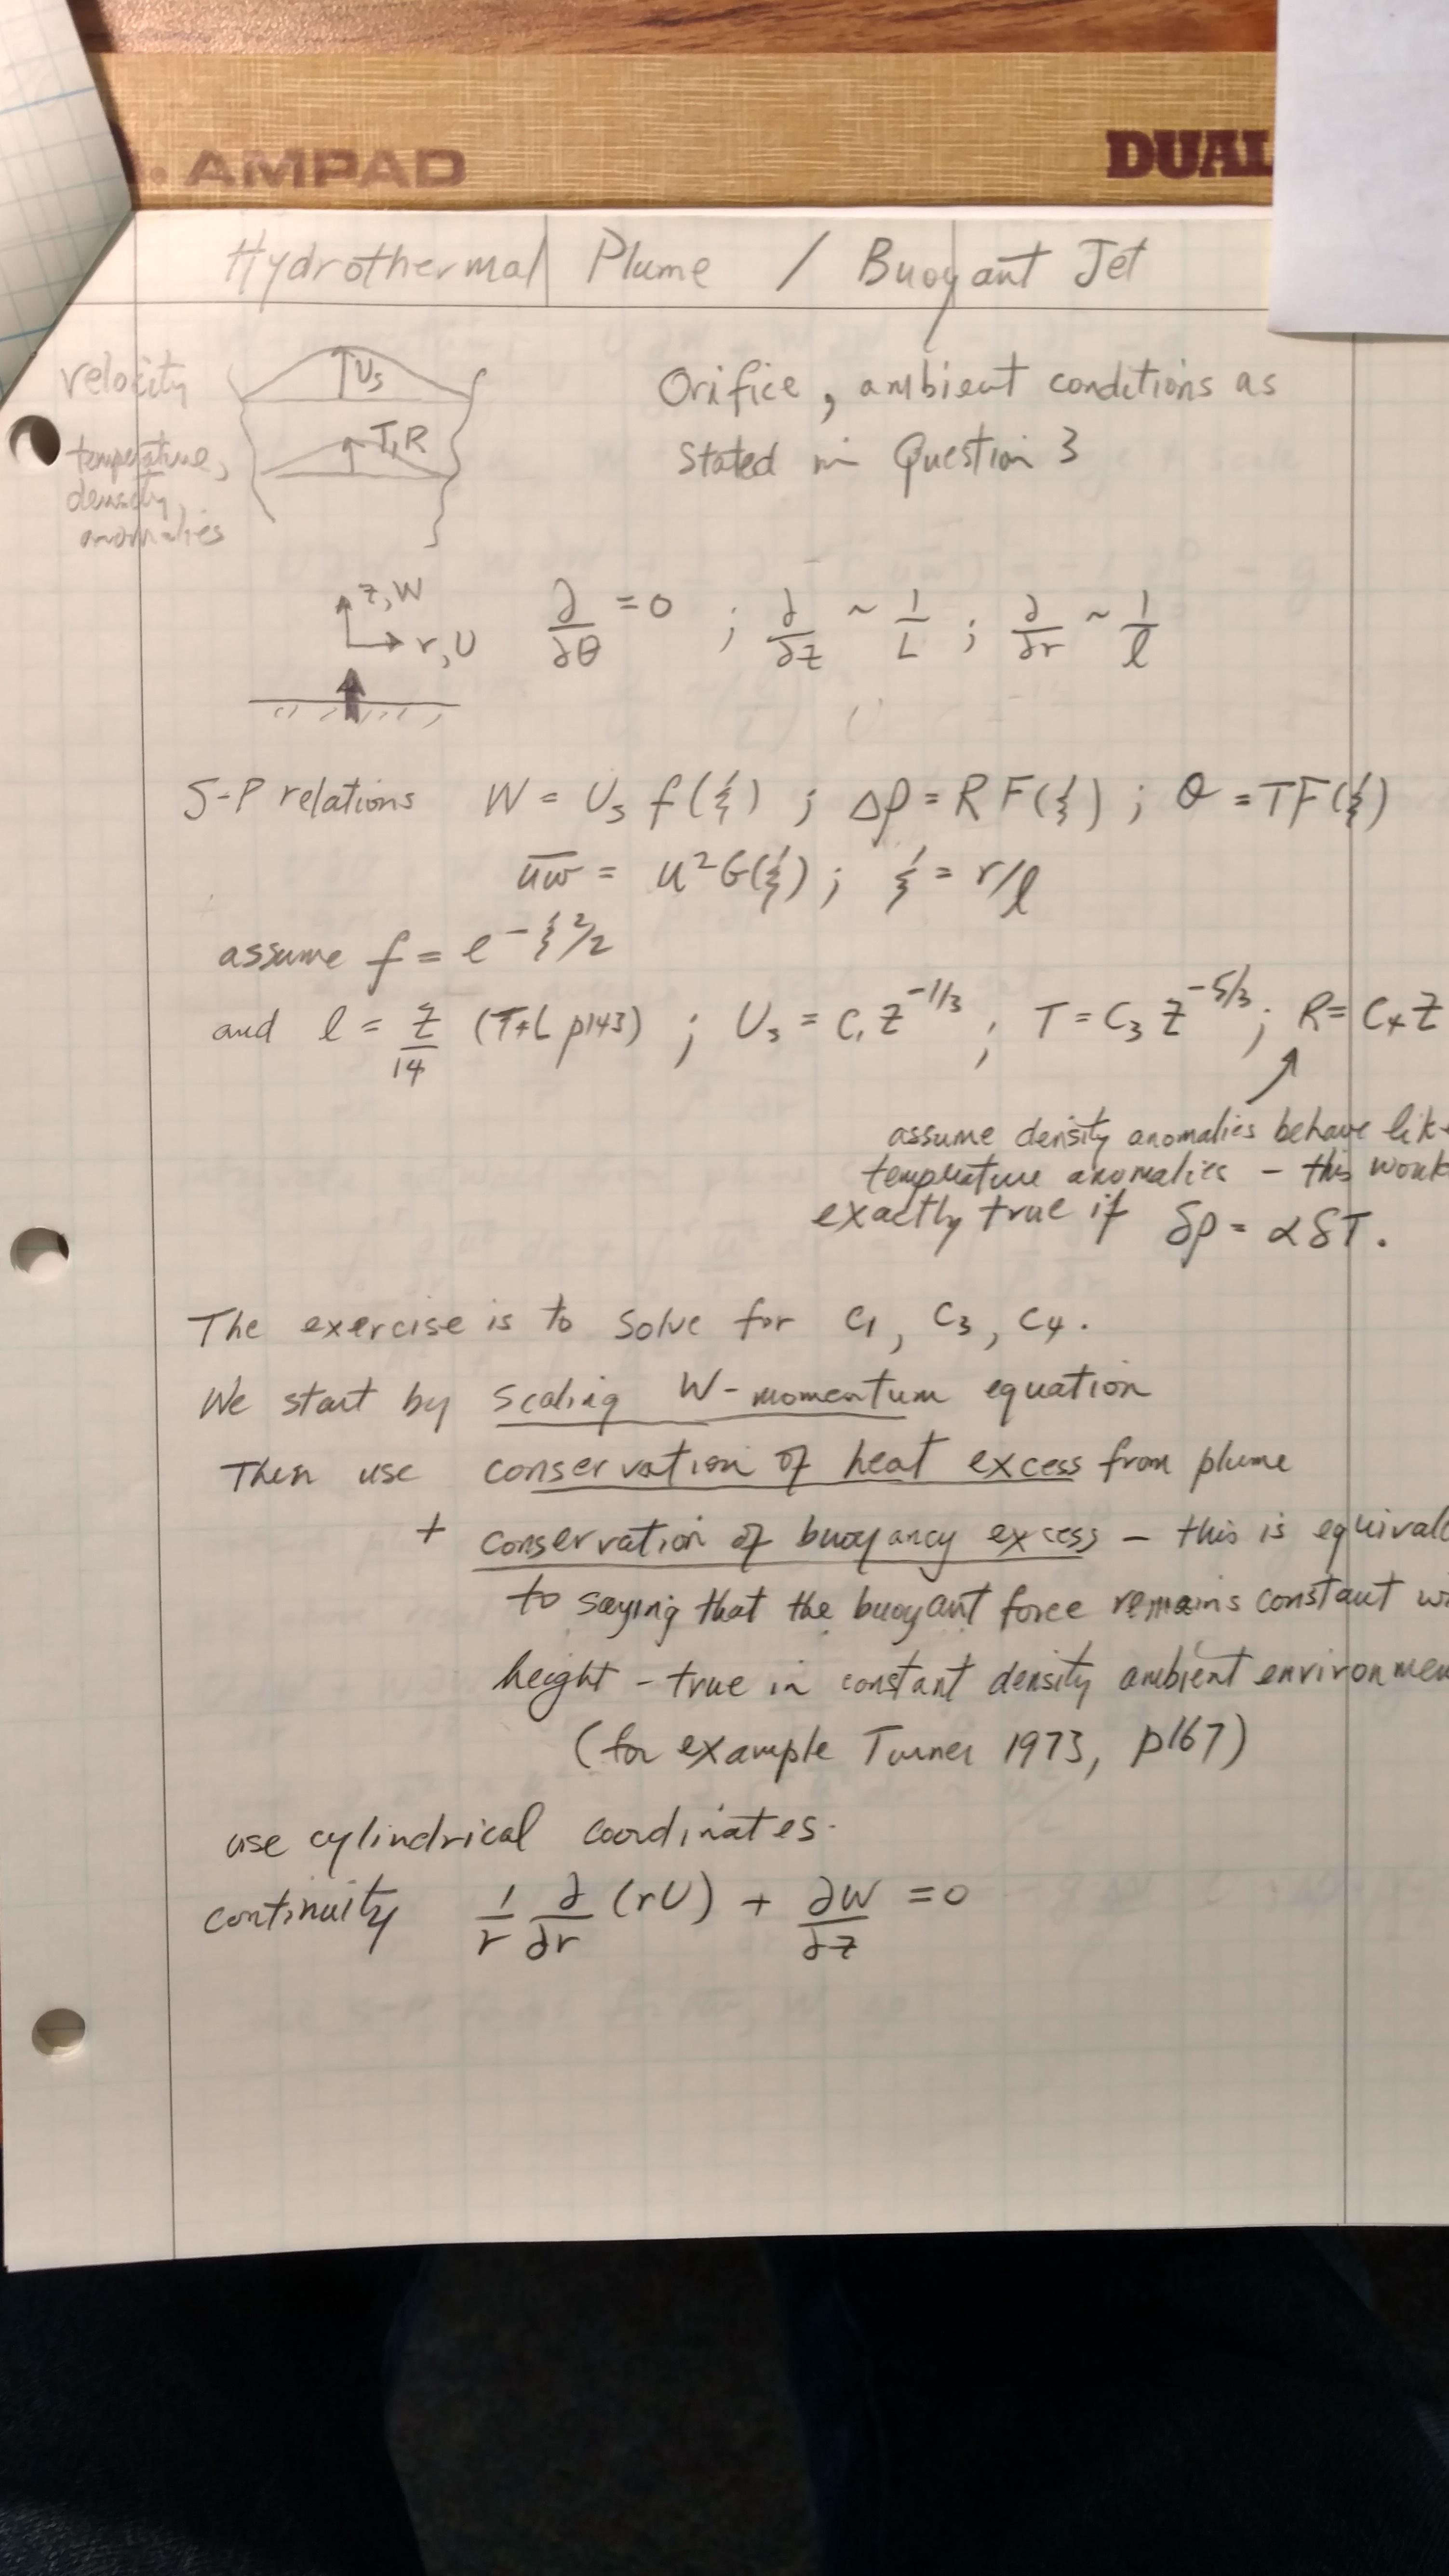 AMPAD
DUAL
Hydrothermal Plume / Buoyant Jet
velocity
Us
temperature,
density,
anomalies
T,R
Orifice, ambient conditions as
stated in Question 3
z,W
r,U
∂/∂θ = 0 ; ∂/∂z ~ 1/L ; ∂/∂r ~ 1/ℓ
S-P relations W = Us f(ξ) ; Δρ = R F(ξ) ; θ = T F(ξ)
u̅w̅ = u² G(ξ) ; ξ = r/ℓ
assume f = e^(-ξ²/2)
and ℓ = z/14 (T+L p143) ; Us = c₁ z^(-1/3) ; T = c₃ z^(-5/3) ; R = c₄ z
assume density anomalies behave lik
temperature anomalies – this woul
exactly true if δρ = αδT.
The exercise is to solve for c₁, c₃, c₄.
We start by scaling W-momentum equation
Then use conservation of heat excess from plume
+ conservation of buoyancy excess – this is equival
to saying that the buoyant force remains constant w
height – true in constant density ambient environmen
(for example Turner 1973, p167)
use cylindrical coordinates.
continuity 1/r ∂/∂r (rU) + ∂W/∂z = 0